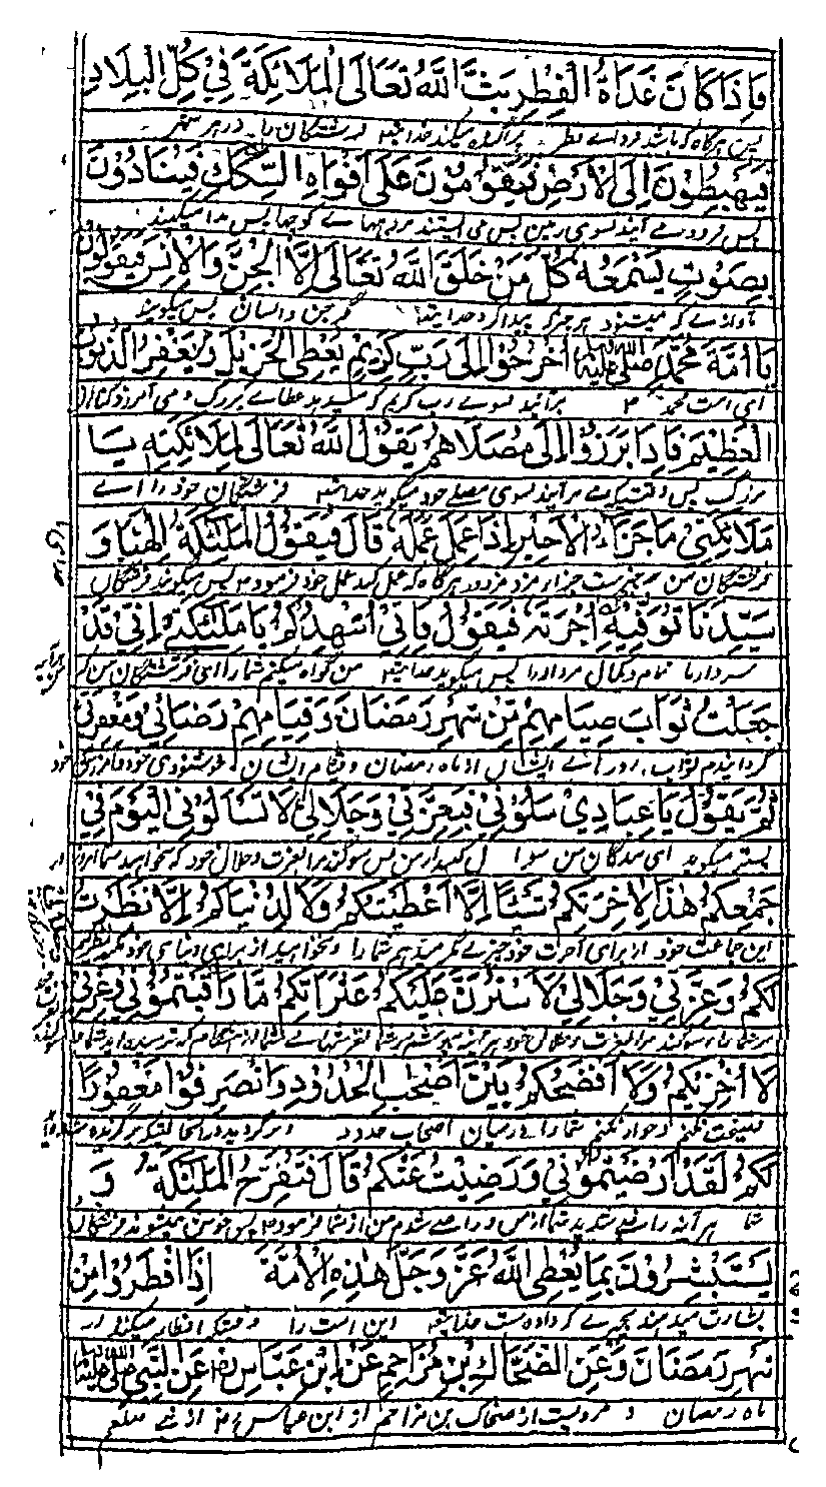 فَاِذَا كَانَ غَدَاةُ الْفِطْرِ بَثَّ اللّٰهُ تَعَالَى الْمَلَائِكَةَ فِيْ كُلِّ الْبِلَادِ
پس هرگاه که باشد فردای فطر پراگنده میکند خدایتعالی فرشتگان را در هر شهر
فَيَهْبِطُوْنَ اِلَى الْاَرْضِ فَيَقُوْمُوْنَ عَلَى اَفْوَاهِ السِّكَكِ فَيُنَادُوْنَ
پس فرود می آیند بسوی زمین پس می ایستند بر دهنهای کوچها پس ندا میکنند
بِصَوْتٍ يَسْمَعُهُ كُلُّ مَنْ خَلَقَ اللّٰهُ تَعَالَى اِلَّا الْجِنَّ وَالْاِنْسَ فَيَقُوْلُوْنَ
بآوازی که میشنود هر چیز که پیدا کرد خدایتعالی مگر جن و انسان پس میگویند
يَا اُمَّةَ مُحَمَّدٍ صلى الله عليه اُخْرُجُوْا اِلَى رَبٍّ كَرِيْمٍ يُعْطِى الْجَزِيْلَ وَيَغْفِرُ الذَّنْبَ
ای امت محمد برآئید بسوی رب کریم که میدهد عطای بزرگ و می آمرزد گناه
الْعَظِيْمَ فَاِذَا بَرَزُوْا اِلَى مُصَلَّاهُمْ يَقُوْلُ اللّٰهُ تَعَالَى لِمَلَائِكَتِهِ يَا
بزرگ پس وقتیکه برآیند بسوی مصلی خود میگوید خدایتعالی فرشتگان خود را ای
مَلَائِكَتِيْ مَا جَزَاءُ الْاَجِيْرِ اِذَا عَمِلَ عَمَلَهُ قَالَ فَيَقُوْلُ الْمَلٰئِكَةُ اِلٰهَنَا وَ
فرشتگان من چیست جزاء مزدور هرگاه که عمل کند عمل خود فرمود پس میگویند فرشتگان
سَيِّدَنَا تُوَفِّيْهِ اُجْرَتَهُ فَيَقُوْلُ فَاِنِّيْ اُشْهِدُكُمْ يَا مَلٰئِكَتِيْ اِنِّيْ قَدْ
سردار ما تمام و کمال مزد او را پس میگوید خدایتعالی من گواه میکنم شما را ای فرشتگان من که
جَعَلْتُ ثَوَابَ صِيَامِهِمْ مِنْ شَهْرِ رَمَضَانَ وَقِيَامِهِمْ رَضَائِيْ وَمَغْفِرَتِيْ
گردانیدم ثواب روزهای ایشان از ماه رمضان و قیام ایشان خوشنودی خود و آمرزش خود
ثُمَّ يَقُوْلُ يَا عِبَادِيْ سَلُوْنِيْ فَبِعِزَّتِيْ وَجَلَالِيْ لَا تَسْأَلُوْنِي الْيَوْمَ فِيْ
پستر میگوید ای بندگان من سوال کنید از من پس سوگند مرا بعزت و جلال خود که نخواهید شما امروز در
جَمْعِكُمْ هٰذَا لِاٰخِرَتِكُمْ شَيْئًا اِلَّا اَعْطَيْتُكُمْ وَلَا لِدُنْيَاكُمْ اِلَّا نَظَرْتُ
این جماعت خود از برای آخرت خود چیزی مگر میدهم شما را و نخواهید از برای دنیای خود مگر نظر
لَكُمْ وَعِزَّتِيْ وَجَلَالِيْ لَاَسْتُرَنَّ عَلَيْكُمْ عَثَرَاتِكُمْ مَا رَاقَبْتُمُوْنِيْ وَعِزَّتِيْ
لَا اُخْزِيْكُمْ وَلَا اُفْضِحُكُمْ بَيْنَ اَصْحٰبِ الْحُدُوْدِ وَانْصَرِفُوْا مَغْفُوْرًا
فضیحت نکنم و خوار نکنم شما را در میان اصحاب حدود و برگردید
لَكُمْ لَقَدْ اَرْضَيْتُمُوْنِيْ وَرَضِيْتُ عَنْكُمْ قَالَ فَتَفْرَحُ الْمَلٰئِكَةُ وَ
شما هر آینه راضی شدید شما از من و راضی شدم من از شما فرمود پس خوش میشوند فرشتگان
يَسْتَبْشِرُوْنَ بِمَا يُعْطِى اللّٰهُ عَزَّ وَجَلَّ هٰذِهِ الْاُمَّةَ اِذَا اَفْطَرُوْا مِنْ
بشارت میدهند بچیزی که داده است خدایتعالی این امت را وقتیکه افطار میکنند از
شَهْرِ رَمَضَانَ وَعَنِ الضَّحَّاكِ بْنِ مُزَاحِمٍ عَنْ ابْنِ عَبَّاسٍ رض عَنِ النَّبِيِّ صلى الله عليه
ماه رمضان و مرویست از ضحاک بن مزاحم از ابن عباس رض از نبی صلعم